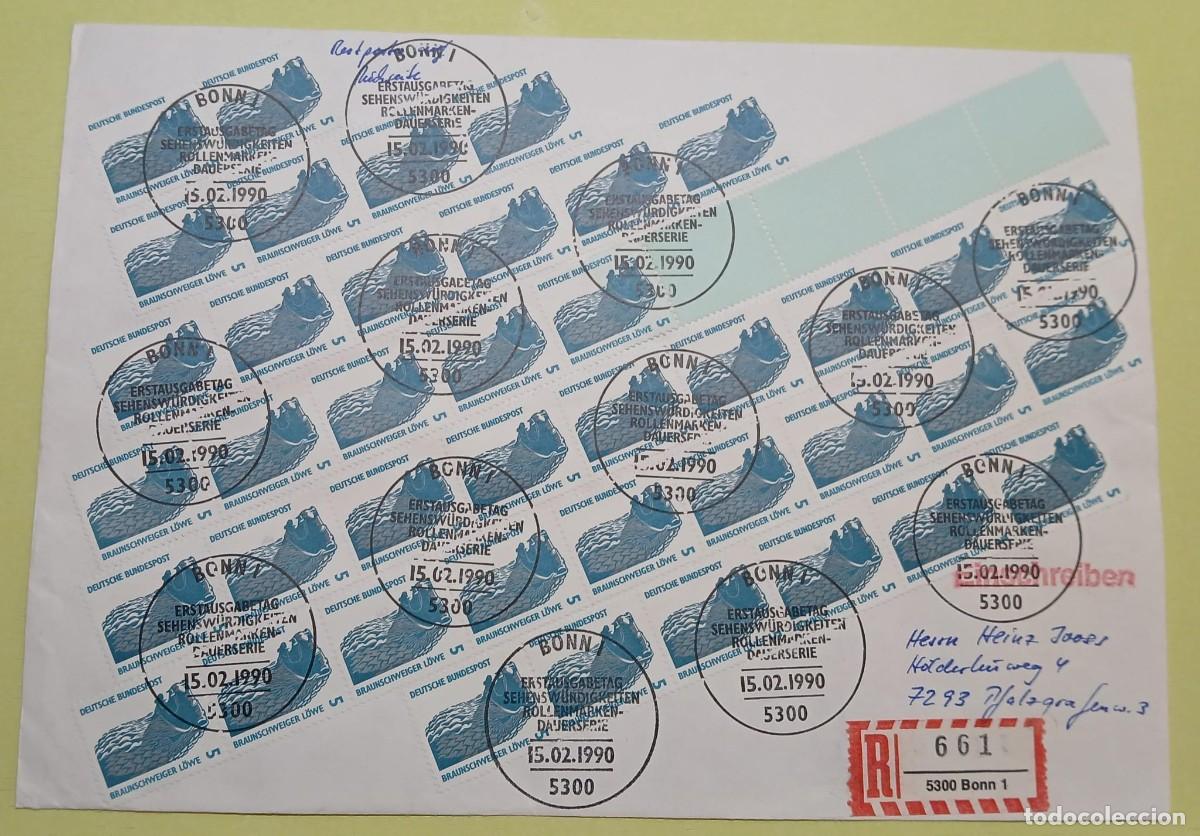 Restporto auf
Rückseite
DEUTSCHE BUNDESPOST
BRAUNSCHWEIGER LÖWE 5
BONN 1
ERSTAUSGABETAG
SEHENSWÜRDIGKEITEN
ROLLENMARKEN-
DAUERSERIE
15.02.1990
5300
Einschreiben
Herrn Heinz
7293
R 661
5300 Bonn 1
todocoleccion